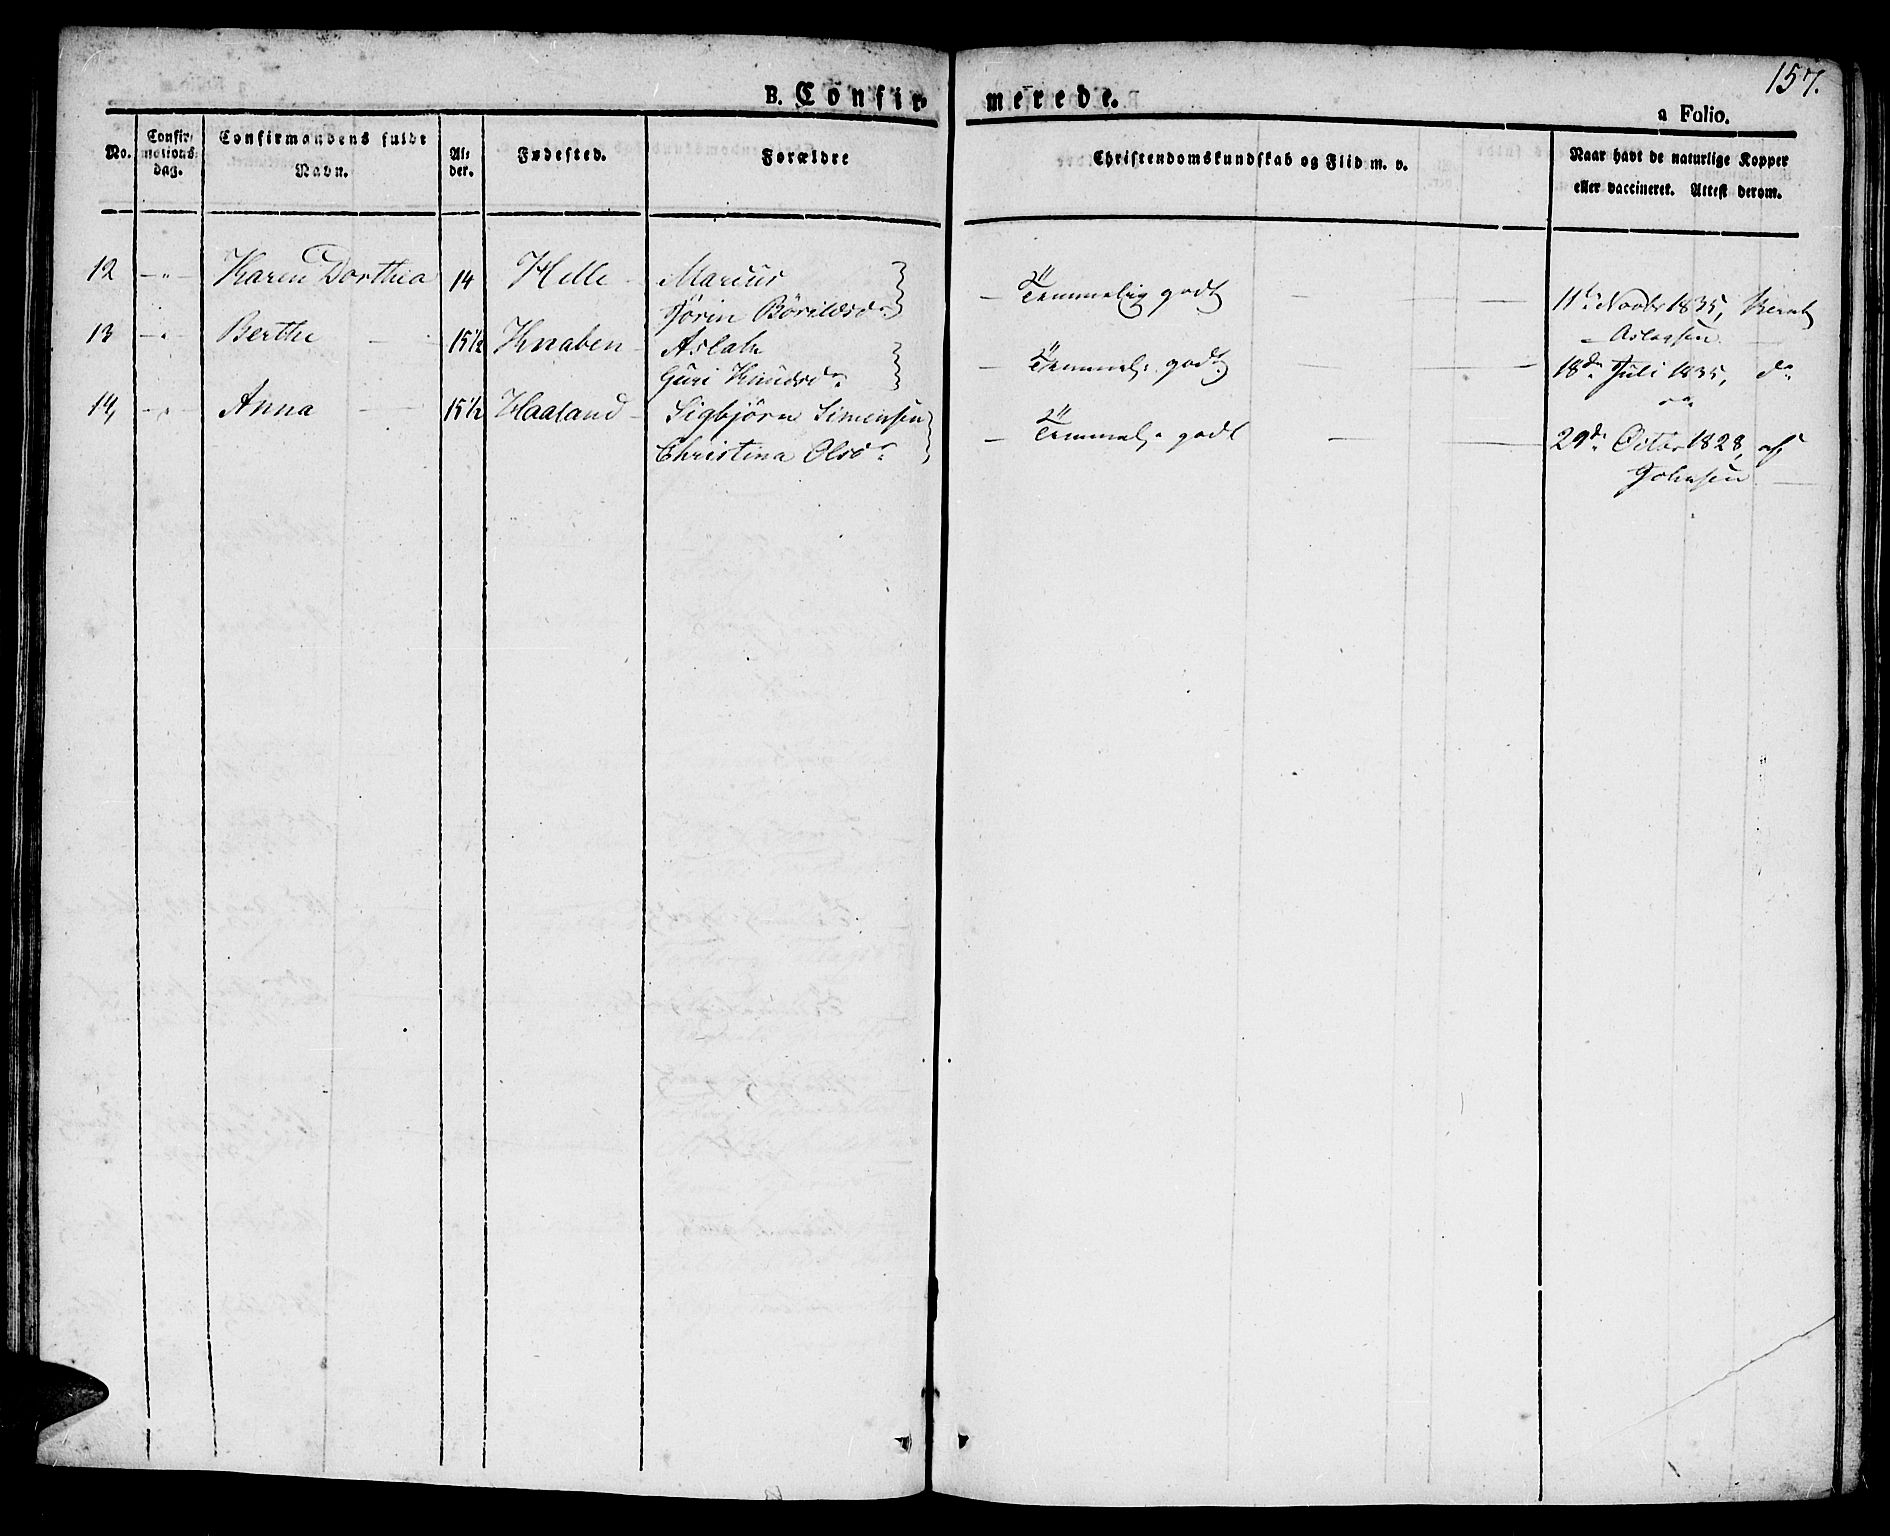 157.
B. Confir- merede.
a Folio.
No.
Confir-
mations-
dag.
Confirmandens fulde
Navn.
Al-
der.
Fødested.
Forældre
Christendomskundskab og Flid m. v.
Naar havt de naturlige Kopper
eller vaccineret. Attest derom.
12 — " — Karen Dorthea 14 Helle - Marcus
Jørin Bårildsdr
— Temmelig godt — — — 11te Novbr 1835, Bernt
Aslagsen
13 - " - Berthe — 15½ Knaben - Aslak
Guri Knudsdr
— Temmel. godt — — — 18de Juli 1835, do
do
14, - " - Anna — 15½ Haaland - Sigbjörn Simensen
Christina Olsdr
— Temmel. godt — — 29de Octbr 1828, af
Johnsen —